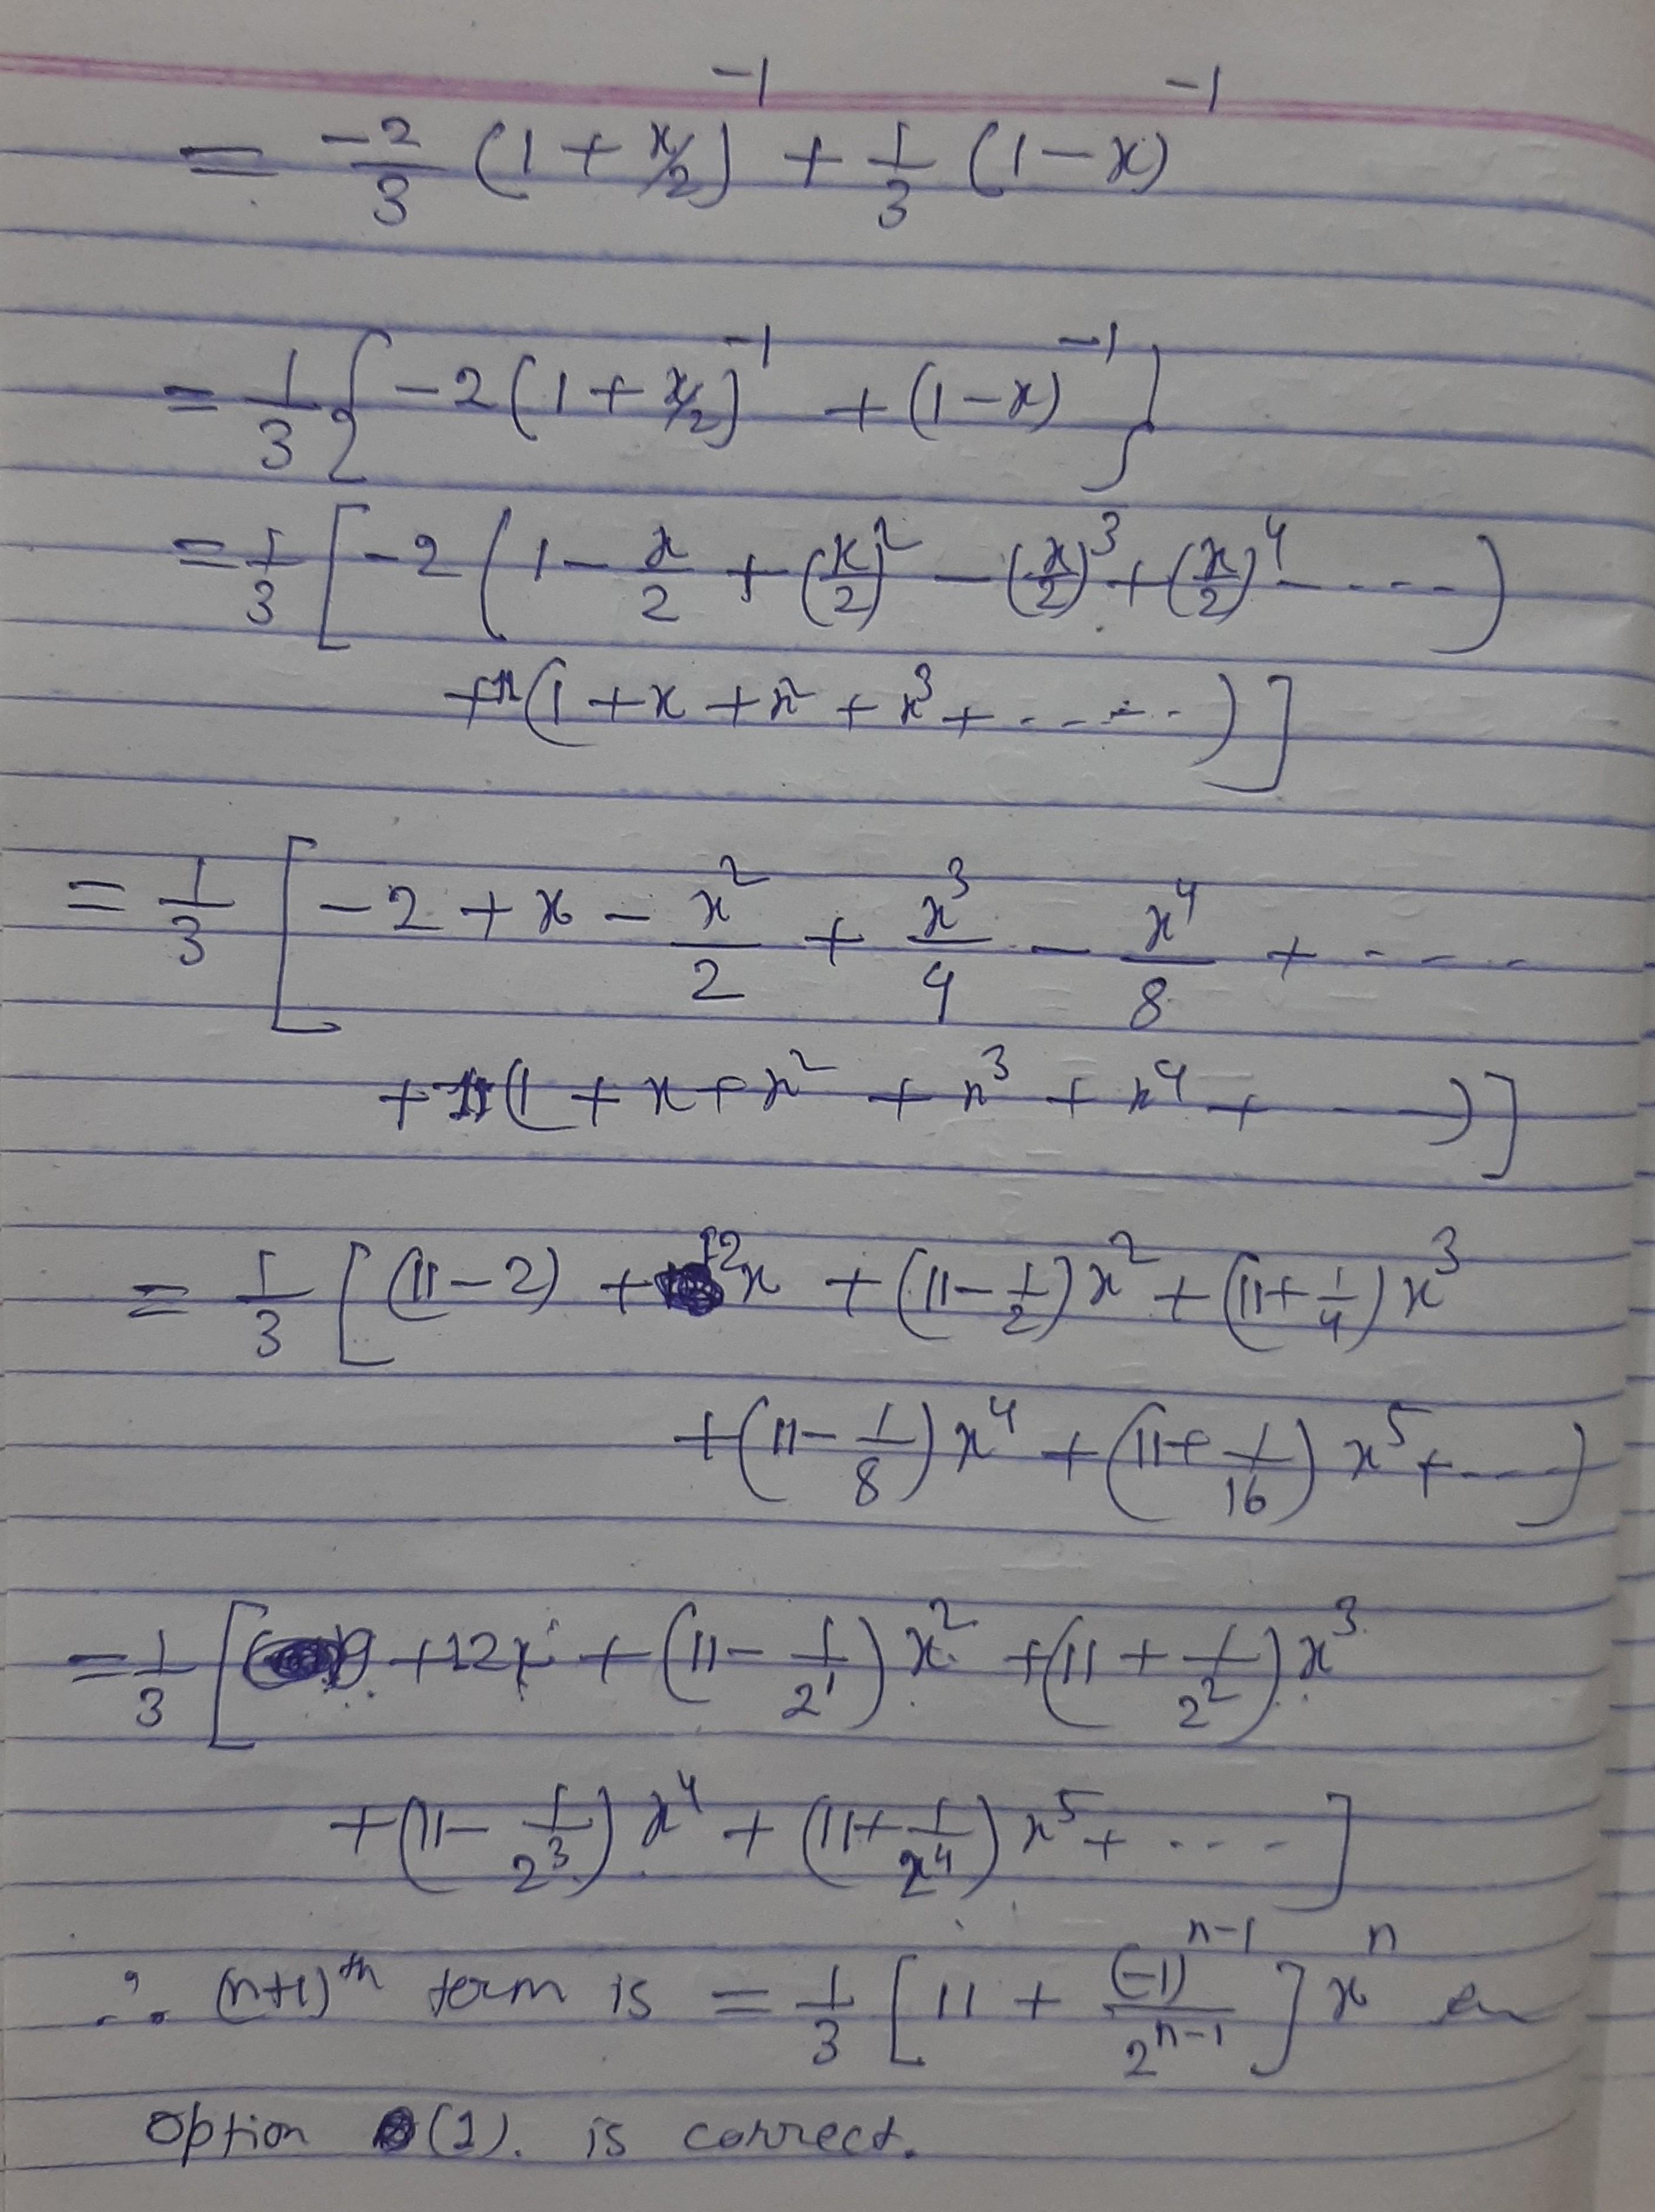 = -2/3 (1 + x/2)^-1 + 1/3 (1 - x)^-1
= 1/3 { -2 (1 + x/2)^-1 + (1 - x)^-1 }
= 1/3 [ -2 ( 1 - x/2 + (x/2)^2 - (x/2)^3 + (x/2)^4 - ---- )
+ 11 (1 + x + x^2 + x^3 + ------ ) ]
= 1/3 [ -2 + x - x^2/2 + x^3/4 - x^4/8 + ----
+ 11 (1 + x + x^2 + x^3 + x^4 + ---- ) ]
= 1/3 [ (11 - 2) + 12x + (11 - 1/2) x^2 + (11 + 1/4) x^3
+ (11 - 1/8) x^4 + (11 + 1/16) x^5 + ---- ]
= 1/3 [ 9 + 12x + (11 - 1/2^1) x^2 + (11 + 1/2^2) x^3
+ (11 - 1/2^3) x^4 + (11 + 1/2^4) x^5 + ---- ]
∴ (n+1)^th term is = 1/3 [ 11 + (-1)^n-1 / 2^n-1 ] x^n
option (1). is correct.